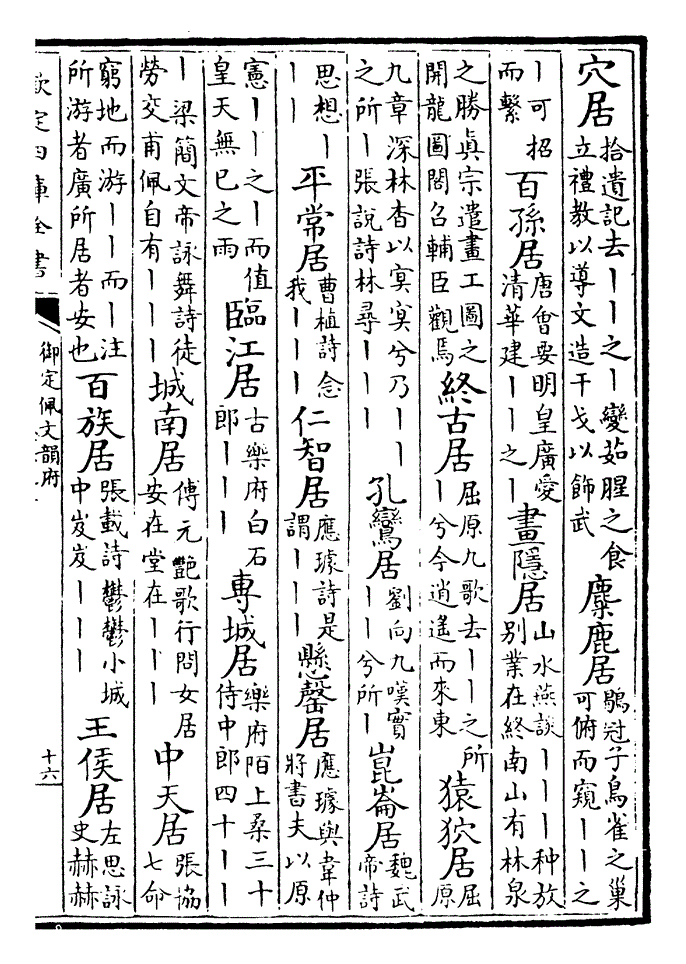 穴居
拾遺記去丨丨之丨變茹腥之食
立禮教以導文造干戈以飾武
麋鹿居
鶡冠子鳥雀之巢
可俯而窺丨丨之
丨可招
而繫
百孫居
唐會要明皇廣愛
清華建丨丨之丨
畫隱居
山水燕談丨丨丨种放
别業在終南山有林泉
之勝真宗遣畫工圖之
開龍圖閣召輔臣觀焉
終古居
屈原九歌去丨丨之所
丨兮今逍遙而來東
猿狖居
屈
原
九章深林杳以冥冥兮乃丨丨
之所丨張說詩林尋丨丨丨
孔鸞居
劉向九嘆實
丨丨兮所丨
崑崙居
魏武
帝詩
思想丨
丨丨
平常居
曹植詩念
我丨丨丨
仁智居
應璩詩是
謂丨丨丨
懸罄居
應璩與韋仲
將書夫以原
憲丨丨之丨而值
皇天無已之雨
臨江居
古樂府白石
郎丨丨丨
專城居
樂府陌上桑三十
侍中郎四十丨丨
丨梁簡文帝詠舞詩徒
勞交甫佩自有丨丨丨
城南居
傅元豔歌行問女居
安在堂在丨丨丨
中天居
張協
七命
窮地而游丨丨而丨注
所游者廣所居者安也
百族居
張載詩鬱鬱小城
中岌岌丨丨丨
王侯居
左思詠
史赫赫
欽定四庫全書
御定佩文韻府
十六